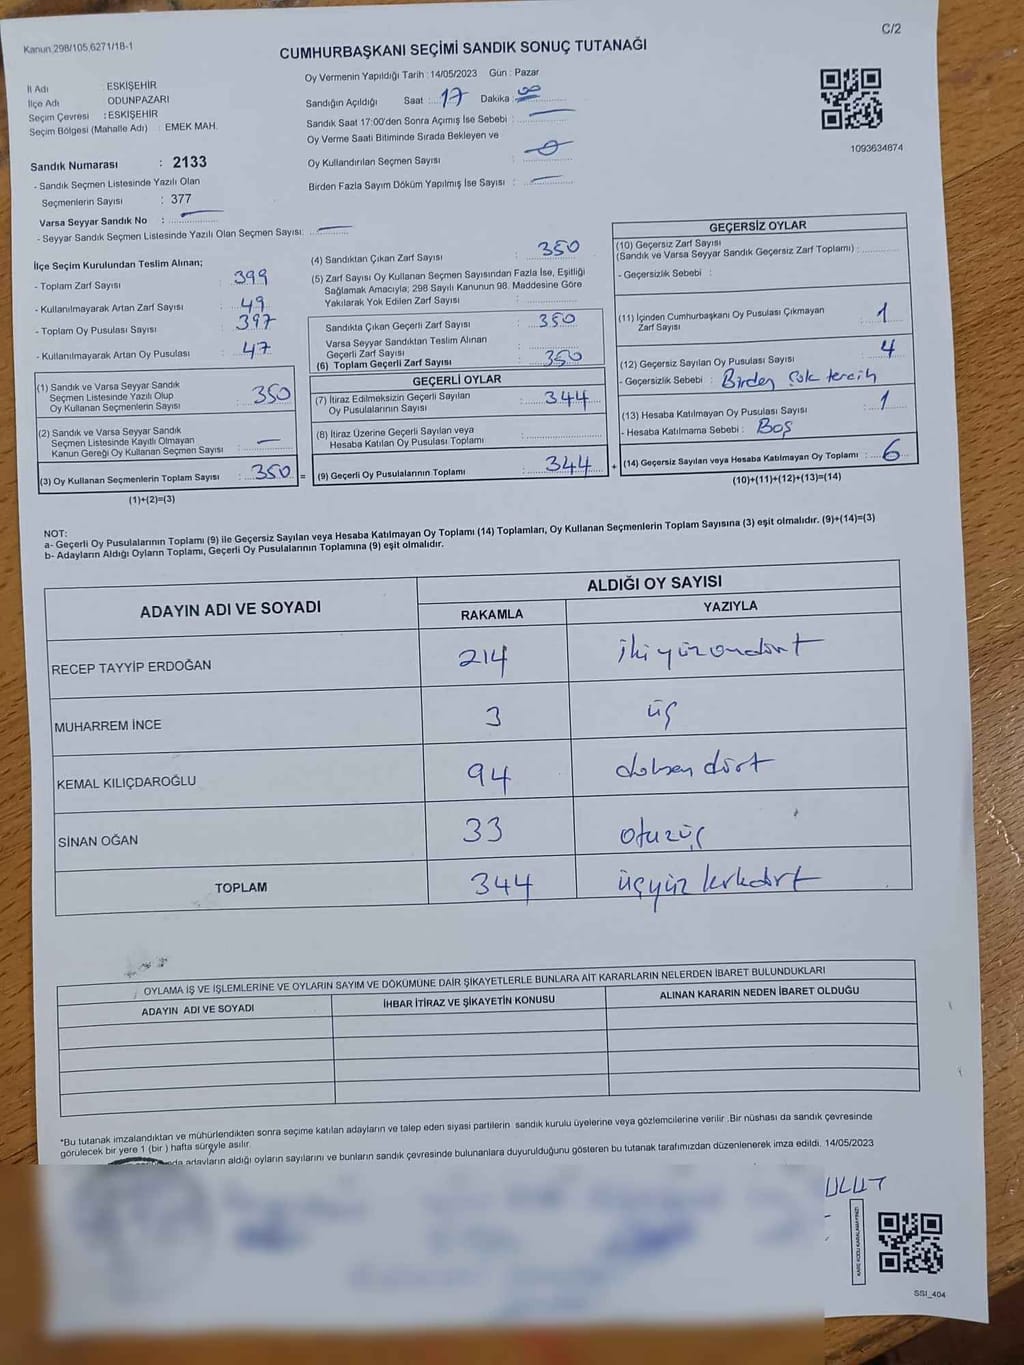 Kanun 298/105,6271/18-1
C/2
CUMHURBAŞKANI SEÇİMİ SANDIK SONUÇ TUTANAĞI
İl Adı : ESKİŞEHİR
İlçe Adı ODUNPAZARI
Seçim Çevresi : ESKİŞEHİR
Seçim Bölgesi (Mahalle Adı) : EMEK MAH.
Sandık Numarası : 2133
- Sandık Seçmen Listesinde Yazılı Olan
Seçmenlerin Sayısı : 377
Varsa Seyyar Sandık No :
- Seyyar Sandık Seçmen Listesinde Yazılı Olan Seçmen Sayısı:
Oy Vermenin Yapıldığı Tarih : 14/05/2023 Gün : Pazar
Sandığın Açıldığı Saat : 17 Dakika : 00
Sandık Saat 17:00'den Sonra Açımış İse Sebebi :
Oy Verme Saati Bitiminde Sırada Bekleyen ve
Oy Kullandırılan Seçmen Sayısı :
Birden Fazla Sayım Döküm Yapılmış İse Sayısı :
1093634874
İlçe Seçim Kurulundan Teslim Alınan;
- Toplam Zarf Sayısı : 399
- Kullanılmayarak Artan Zarf Sayısı : 49
- Toplam Oy Pusulası Sayısı : 397
- Kullanılmayarak Artan Oy Pusulası : 47
(1) Sandık ve Varsa Seyyar Sandık
Seçmen Listesinde Yazılı Olup
Oy Kullanan Seçmenlerin Sayısı : 350
(2) Sandık ve Varsa Seyyar Sandık
Seçmen Listesinde Kayıtlı Olmayan
Kanun Gereği Oy Kullanan Seçmen Sayısı :
(3) Oy Kullanan Seçmenlerin Toplam Sayısı : 350 =
(1)+(2)=(3)
(4) Sandıktan Çıkan Zarf Sayısı : 350
(5) Zarf Sayısı Oy Kullanan Seçmen Sayısından Fazla İse, Eşitliği
Sağlamak Amacıyla; 298 Sayılı Kanunun 98. Maddesine Göre
Yakılarak Yok Edilen Zarf Sayısı :
Sandıkta Çıkan Geçerli Zarf Sayısı : 350
Varsa Seyyar Sandıktan Teslim Alınan
Geçerli Zarf Sayısı :
(6) Toplam Geçerli Zarf Sayısı : 350
GEÇERLİ OYLAR
(7) İtiraz Edilmeksizin Geçerli Sayılan
Oy Pusulalarının Sayısı : 344
(8) İtiraz Üzerine Geçerli Sayılan veya
Hesaba Katılan Oy Pusulası Toplamı :
(9) Geçerli Oy Pusulalarının Toplamı : 344 +
GEÇERSİZ OYLAR
(10) Geçersiz Zarf Sayısı
(Sandık ve Varsa Seyyar Sandık Geçersiz Zarf Toplamı) :
- Geçersizlik Sebebi :
(11) İçinden Cumhurbaşkanı Oy Pusulası Çıkmayan
Zarf Sayısı : 1
(12) Geçersiz Sayılan Oy Pusulası Sayısı : 4
- Geçersizlik Sebebi : Birden Çok tercih
(13) Hesaba Katılmayan Oy Pusulası Sayısı : 1
- Hesaba Katılmama Sebebi : Boş
(14) Geçersiz Sayılan veya Hesaba Katılmayan Oy Toplamı : 6
(10)+(11)+(12)+(13)=(14)
NOT:
a- Geçerli Oy Pusulalarının Toplamı (9) ile Geçersiz Sayılan veya Hesaba Katılmayan Oy Toplamı (14) Toplamları, Oy Kullanan Seçmenlerin Toplam Sayısına (3) eşit olmalıdır. (9)+(14)=(3)
b- Adayların Aldığı Oyların Toplamı, Geçerli Oy Pusulalarının Toplamına (9) eşit olmalıdır.
ADAYIN ADI VE SOYADI
ALDIĞI OY SAYISI
RAKAMLA YAZIYLA
RECEP TAYYİP ERDOĞAN 214 ikiyüzondört
MUHARREM İNCE 3 üç
KEMAL KILIÇDAROĞLU 94 doksan dört
SİNAN OĞAN 33 otuzüç
TOPLAM 344 üçyüz kırkdört
OYLAMA İŞ VE İŞLEMLERİNE VE OYLARIN SAYIM VE DÖKÜMÜNE DAİR ŞİKAYETLERLE BUNLARA AİT KARARLARIN NELERDEN İBARET BULUNDUKLARI
ADAYIN ADI VE SOYADI İHBAR İTİRAZ VE ŞİKAYETİN KONUSU ALINAN KARARIN NEDEN İBARET OLDUĞU
*Bu tutanak imzalandıktan ve mühürlendikten sonra seçime katılan adayların ve talep eden siyasi partilerin sandık kurulu üyelerine veya gözlemcilerine verilir .Bir nüshası da sandık çevresinde
görülecek bir yere 1 (bir ) hafta süreyle asılır.
adayların aldığı oyların sayılarını ve bunların sandık çevresinde bulunanlara duyurulduğunu gösteren bu tutanak tarafımızdan düzenlenerek imza edildi. 14/05/2023
SSI_404